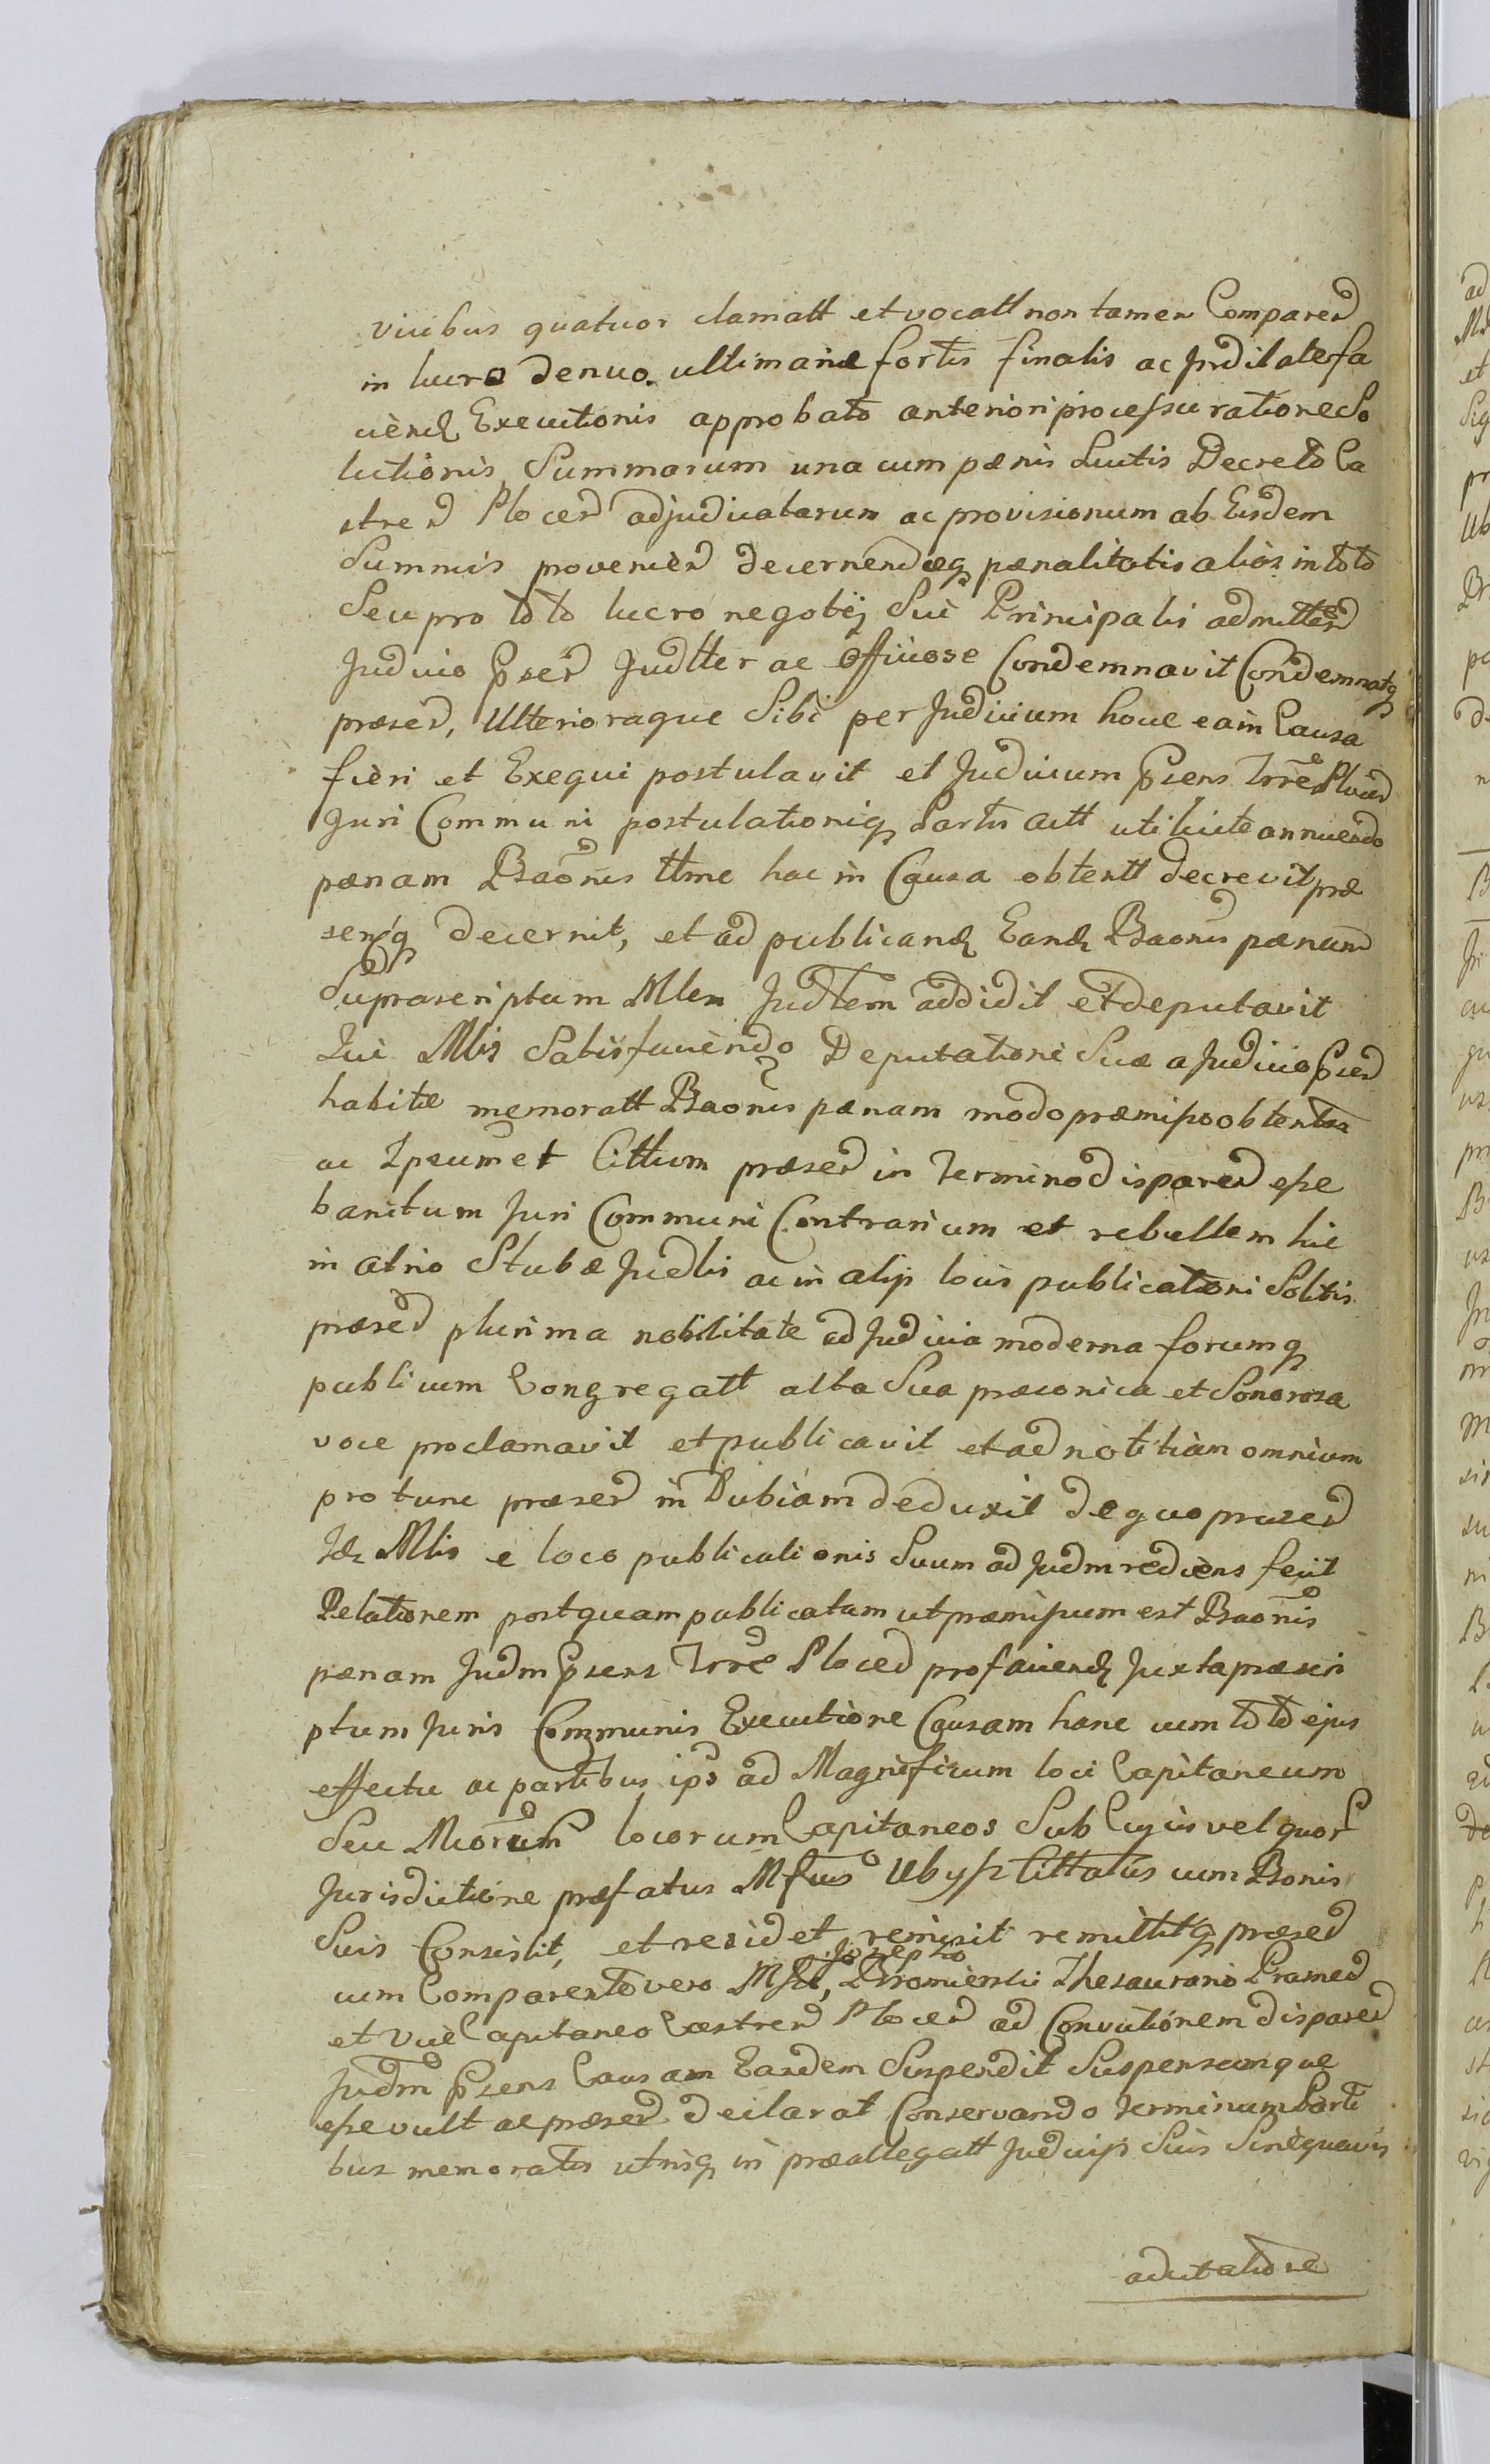 vicibus quatuor clamatt et vocatt non tamen Comparen
in lucro denuo ultimariae fortis finalis ac
ciend Executionis approbato anteriori processu ratione So
lutionis Summarum una cum paenis Luitis Decreto Ca
stren Plocen adjudicatarum ac provisionum ab Eisdem
Summis provenien decernendaeq paenalitatis alias in toto
Seu pro toto lucro negotij Sui Principalis admitten
Judicio Psen Judtter ac officiose Condemnavit Condemnatq
praesen, Ulterioraque Sibi per Judicium hocce ea in Causa
fieri et Exequi postulavit et Judicium Psens Trre Plocen
Juri Communi postulationiq Partis actt uti licite annuendo
paenam Baonis ttme hac in Causa obtentt decrevit prae
sentq decernit, et ad publicand Eand Baonis paenam
Suprascriptum Mlem Judlem addidit et deputavit
Qui Mlis Satisfaciendo Deputationi Suae a Judicio Psen
habitae memoratt Baonis paenam modo praemisso obtentam
ac Ipsummet Cittum praesen in Termino disparen esse
banitum Juri Communi Contrarium et rebellem hic
in atrio Stubae Judlis ac in alijs locis publicationi Solitis
praesen plurima nobilitate ad Judicia moderna forumq
publicum Congregatt alta Sua praeconica et Sonorosa
voce proclamavit et publicavit et ad notitiam omnium
protunc praesen in dubiam deduxit de quo praesen
Id Mlis e loco publicationis Suum ad Judm rediens fecit
Relationem postquam publicatam ut praemissum est Baonis
paenam Judm Psens Trre Plocen pro faciend Juxta praescri
ptum Juris Communis Executione Causam hanc cum toto ejus
effectu ac partibus ips ad Magnificum loci Capitaneum
Seu Mcorum locorum Capitaneos Sub Cujus vel quor
Jurisdictione praefatus Mfcus Ubysz Cittatus cum Bonis
Suis Consistit, et residet remisit remittitq praesen
Josepho
cum Comparente vero Mfco, Thesaurario
et Vice Capitaneo Castren Plocen ad Convictionem disparen
Judm Psens Causam Eandem Suspendit Suspensamque
esse vult ac praesen declarat Conservando terminum Parti
bus memoratis utrisq in praeallegatt Judicijs Suis Sine quavis
adcitatione